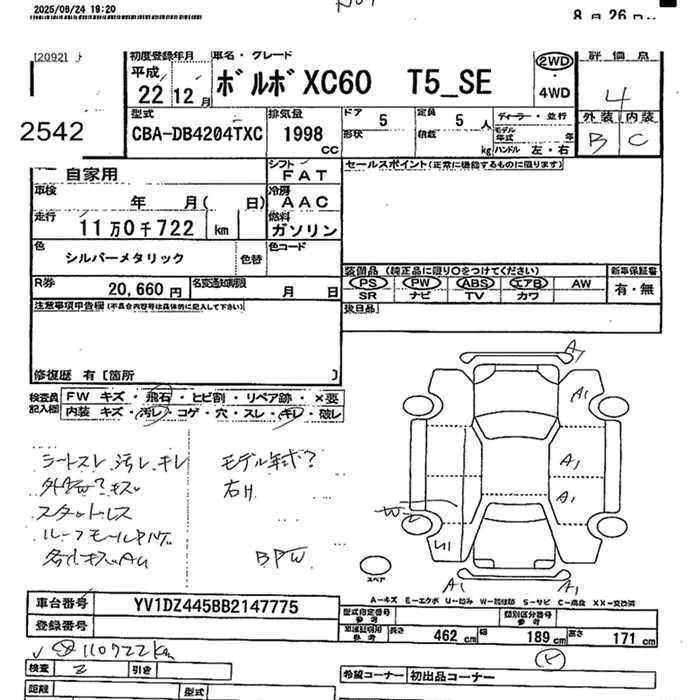 2025/08/24 19:20
8月26日
[2092]
2542
初度登録年月
平成
22 12月
車名・グレード
ボルボ XC60 T5_SE
2WD
4WD
評価点
4
外装 内装
B C
型式
CBA-DB4204TXC
排気量
1998 CC
ドア 5
形状
定員 5 人
積載 kg
ディーラー・並行
モデル年式 年
ハンドル 左・右
自家用
シフト
FAT
車検
年 月( 日)
冷房
AAC
走行
11万0千722 km
燃料
ガソリン
色
シルバーメタリック
色替
色コード
R券
20,660円
名変通知期限
月 日
セールスポイント(正常に機能するものに限ります)
装備品 (純正品に限り○をつけてください)
新車保証書
PS PW ABS エアB AW
有・無
SR ナビ TV カワ
後日品
注意事項申告欄(不具合内容等は具体的に記入して下さい)
修復歴 有[箇所 ]
検査員記入欄
FW キズ・飛石・ヒビ割・リペア跡・×要
内装 キズ・汚レ・コゲ・穴・スレ・キレ・破レ
シートスレ 汚レ キレ
モデル年式?
右H
スタットレス
BPW
A1
A1
A1
A1
W2
U1
A1
A1
スペア
A-キズ E-エクボ U-凹み W-補修跡 S-サビ C-腐食 XX-交換済
車台番号
YV1DZ445BB2147775
登録番号
型式指定番号 参考
類別区分番号 参考
車検証明用 参考 長さ 462 cm 幅 189 cm 高さ 171 cm
110722km
検査 2 引き
希望コーナー 初出品コーナー
距離 型式